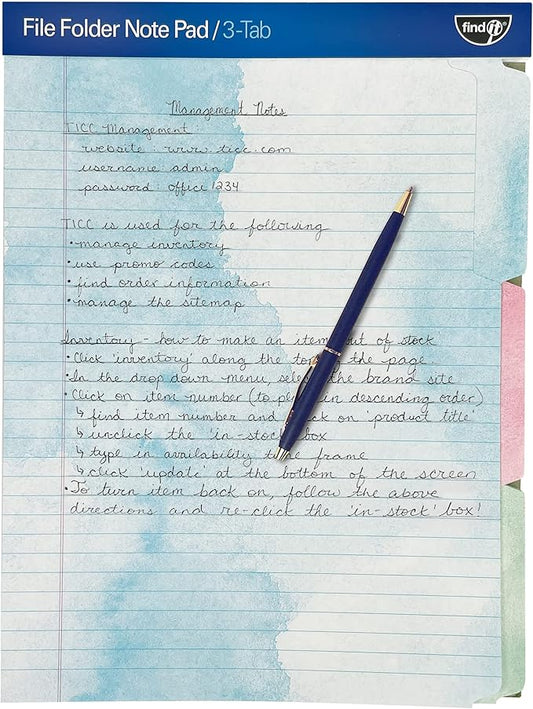 File Folder Note Pad / 3-Tab
find it®
Management Notes
TICC Management:
website: www.ticc.com
username: admin
password: office1234
TICC is used for the following
• manage inventory
• use promo codes
• find order information
• manage the sitemap
Inventory - how to make an item out of stock
• Click 'inventory' along the top the page
• In the drop down menu, select the brand site
• Click on item number (to pl in descending order)
↳ find item number and click on 'product title'
↳ unclick the 'in-stock' box
↳ type in availability time frame
↳ click 'update' at the bottom of the screen
• To turn item back on, follow the above
directions and re-click the 'in-stock' box!